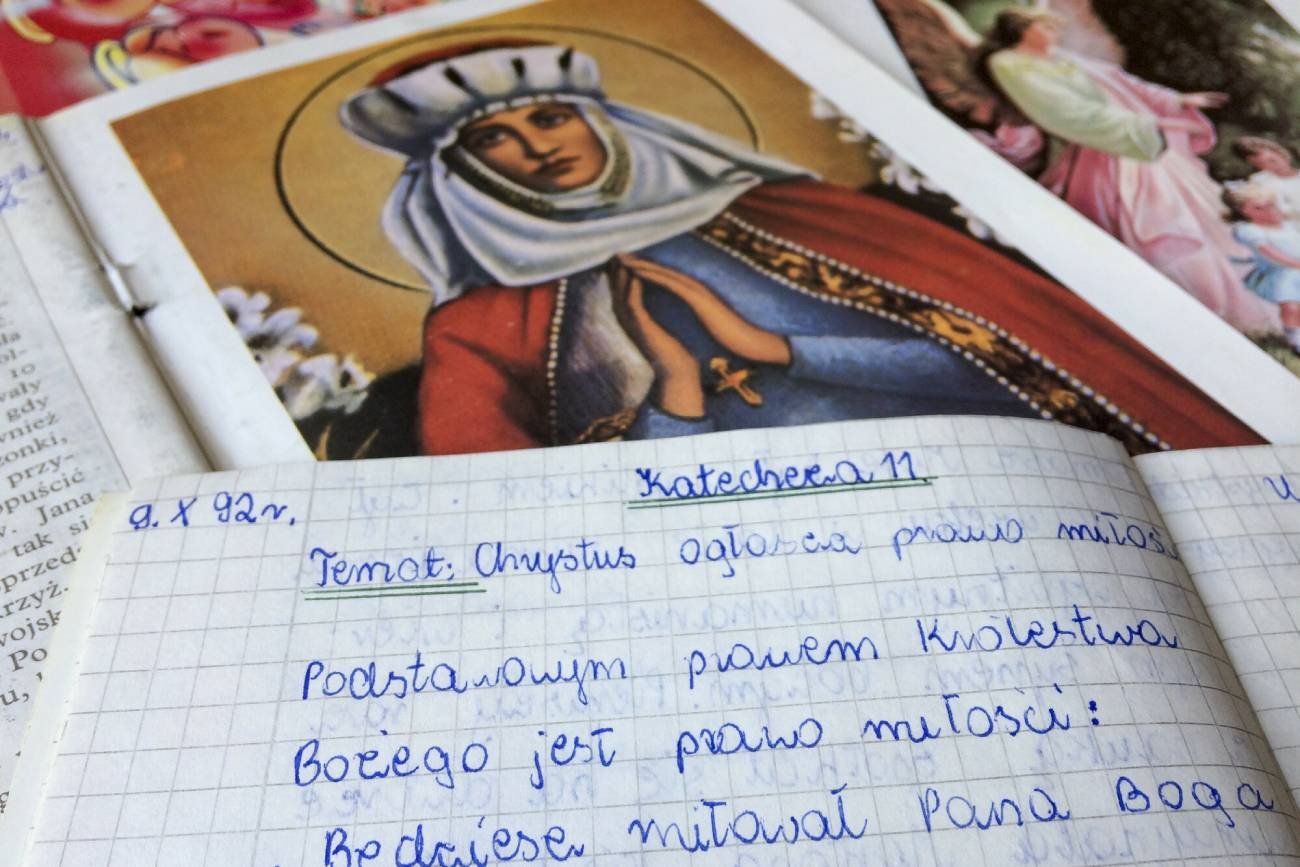 9. X 92 r.
Katecheza 11
Temat: Chrystus ogłasza prawo miłoś
Podstawowym prawem Królestwa
Bożego jest prawo miłości:
Będziesz miłował Pana Boga
wały
gdy
wnież
zonki,
przy-
opuścić
w. Jana
tak się
przed
krzyż.
wojsk
Po
u,